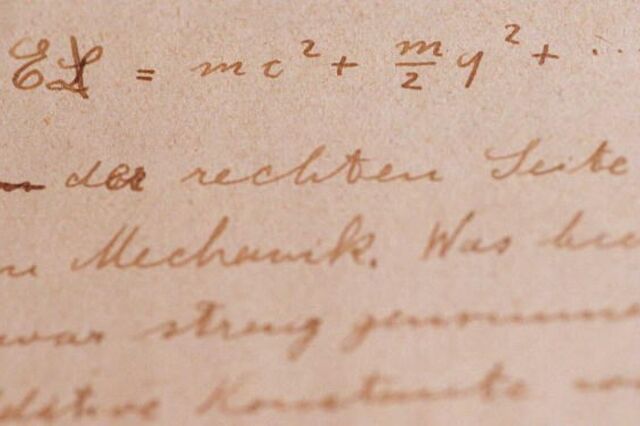 E = mc² + m/2 q² + ..
der rechten Seite
Mechanik. Was
war streng genomme
Konstante